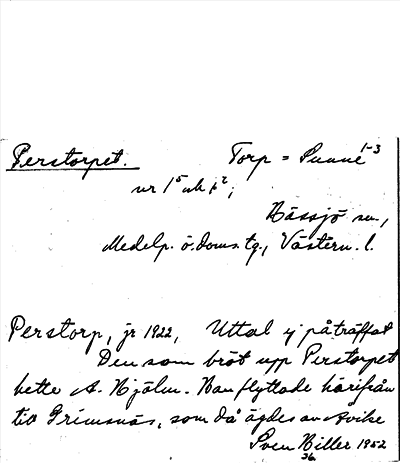 Perstorpet. Torp = Sunne 1-3
nr 1⁵ och 1²;
Hässjö sn.,
Medelp. ö. doms. tg., Västern. l.
Perstorp, jr 1922, Uttal ej påträffat
Den som bröt upp Perstorpet
hette A. Hjälm. Han flyttade härifrån
till Grimsnäs, som då ägdes av Avike
Sven Hiller 1952
36.